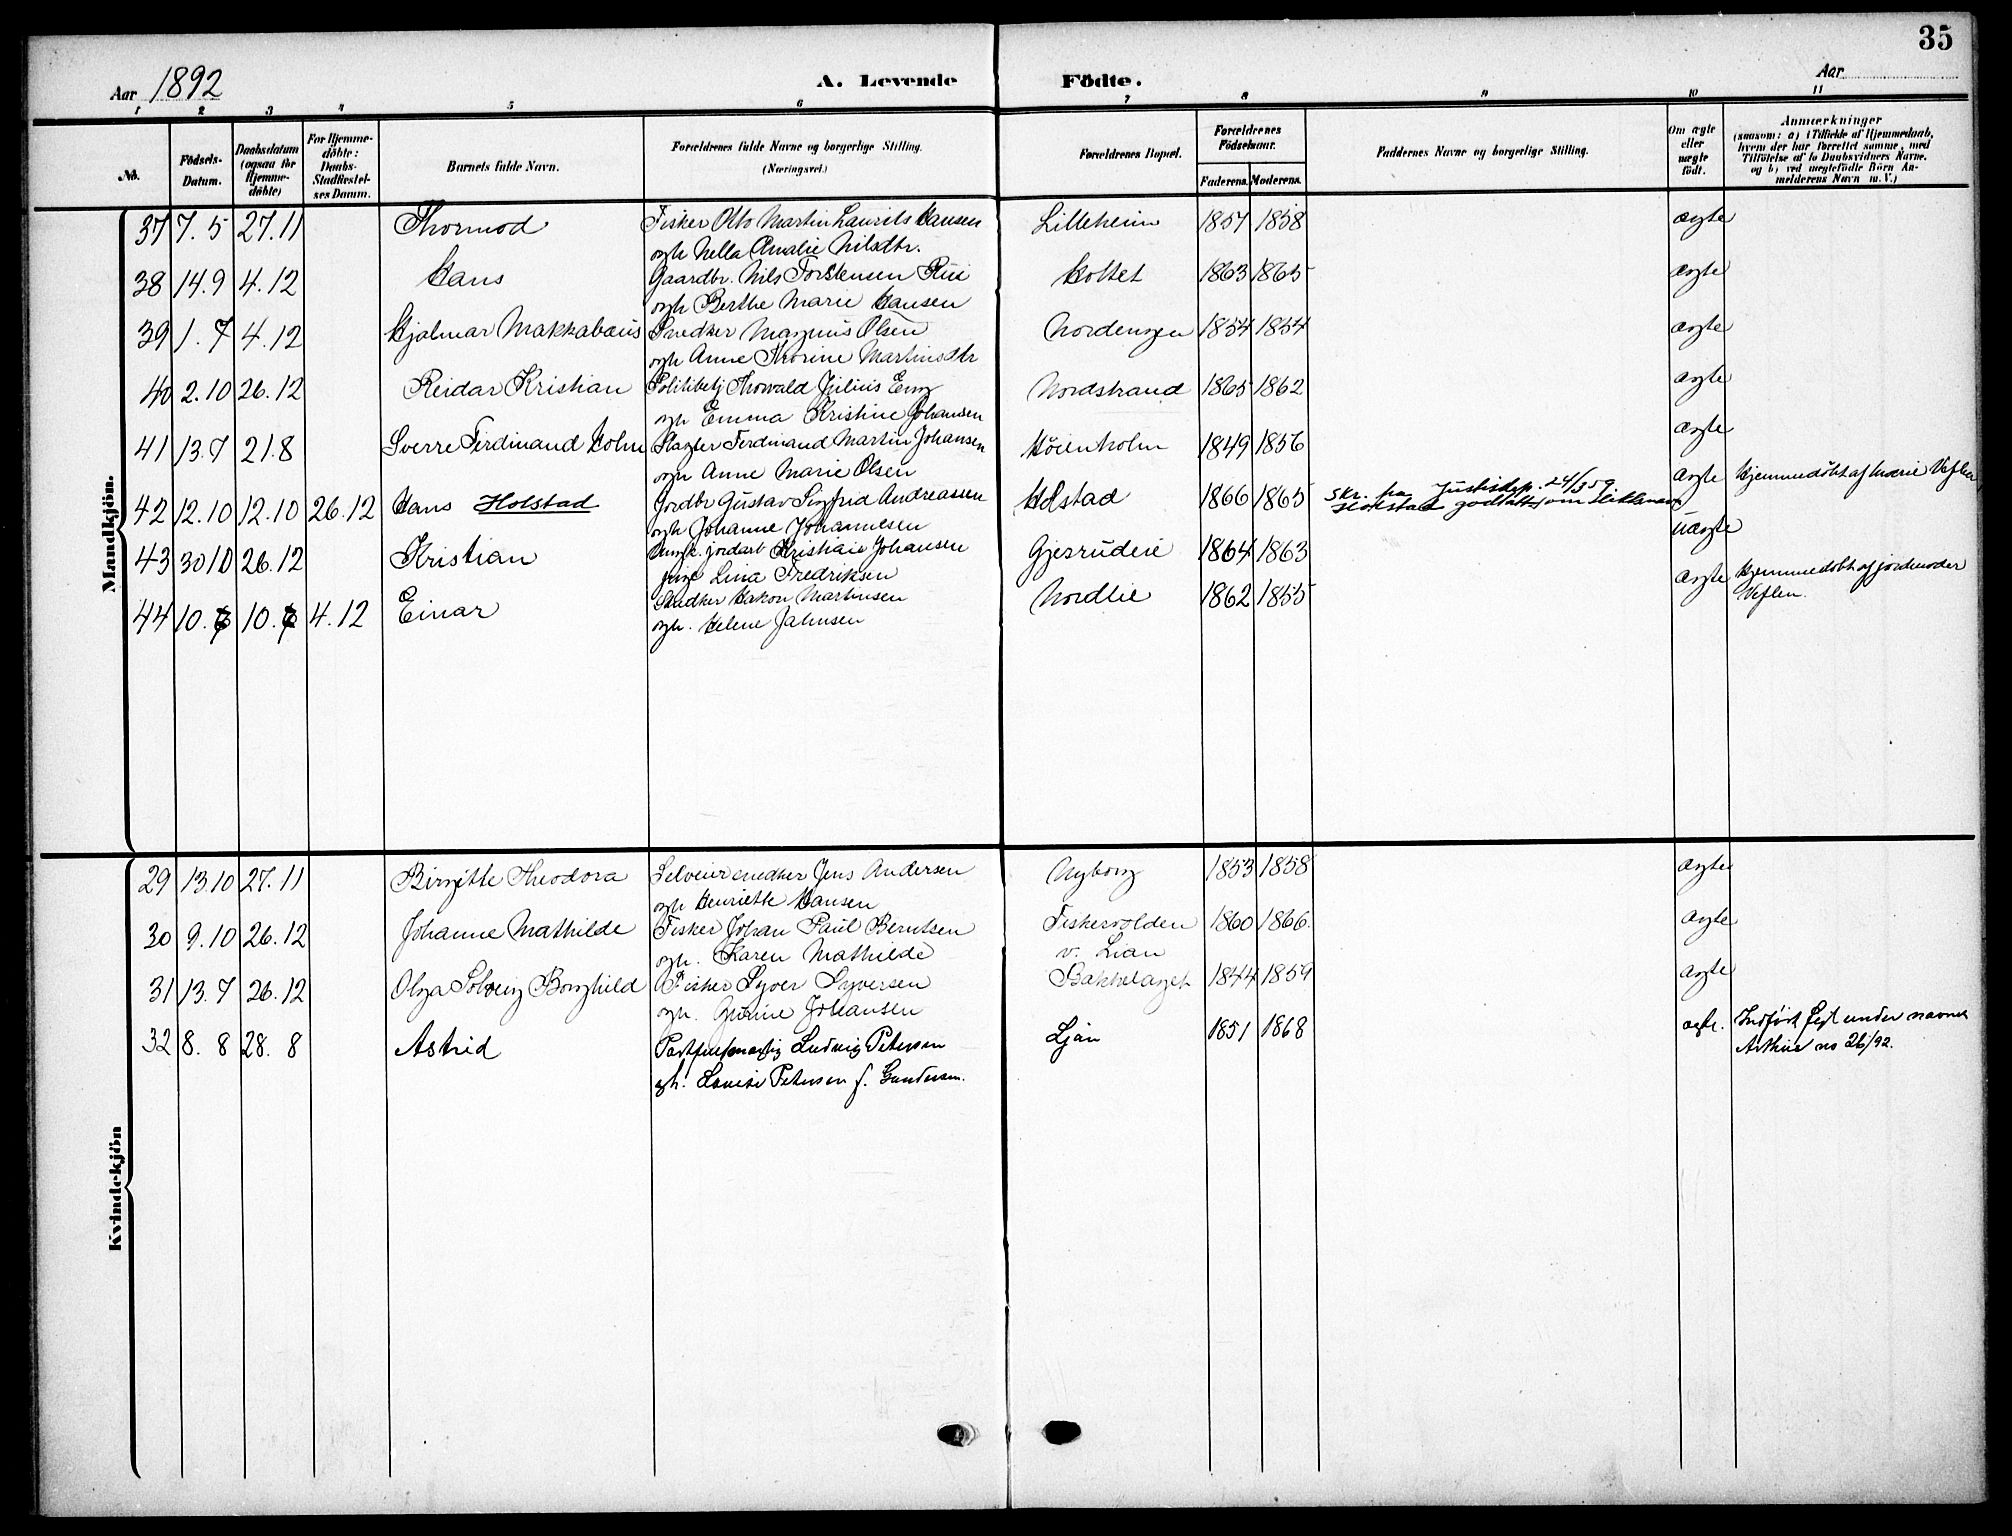 35
Aar 1892 A. Levende Födte. Aar
1 2 3 4 5 6 7 8 9 10 11
No. Födsels-Datum. Daabsdatum (ogsaa for Hjemmedöbte) For Hjemmedöbte: Daabs-Stadfæstelses Datum. Barnets fulde Navn. Forældrenes fulde Navne og borgerlige Stilling. (Næringsvei.) Forældrenes Bopæl. Forældrenes Födselsaar. Faderens. Moderens. Faddernes Navne og borgerlige Stilling. Om ægte eller uægte födt. Anmærkninger (saasom: a) i Tilfælde af Hjemmedaab, hvem der har forrettet samme, med Tilföielse af to Daabsvidners Navne, og b) ved uægtefödte Börn Anmelderens Navn m. V.)
Mandkjön.
37 7.5 27.11 Thormod Fisker Otto Martin Laurits Hansen Lilleheim 1857 1858 ægte
ogh Nella Amalie Nilsdtr.
38 14.9 4.12 Hans Gaardbr. Nils Torstensen Rui Holtet 1863 1865 ægte
ogh Berthe Marie Hansen
39 1.7 4.12 Hjalmar Makkabæus Snedker Magnus Olsen Nordengen 1854 1854 ægte
ogh Anne Thorine Martinsdtr
40 2.10 26.12 Reidar Kristian Politibetj Thorvald Julius Eng Nordstrand 1865 1862 ægte
ogh Emma Kristine Johansen
41 13.7 21.8 Sverre Ferdinand Holm Slagter Ferdinand Martin Johansen Höienholm 1849 1856 ægte
ogh Anne Marie Olsen
42 12.10 12.10 26.12 Hans Holstad Jordbr Gustav Sigfrid Andreassen Holstad 1866 1865 skr. fra Justisdep. 24/3 59. ægte Hjemmedöbt af Marie Veflen
Holstad godtatt som slektsnavn
ogh Johanne Johannesen
43 30 10 26.12 Kristian Ungk. jordarb Kristian Johansen Gjersrudeie 1864 1863 uægte
pige Lina Fredriksen
44 10.7 10.7 4.12 Einar Snedker Hakon Martinsen Nordlie 1862 1855 ægte Hjemmedöbt af jordmoder
ogh. Helene Jahnsen Veflen.
Kvindekjön
29 13.10 27.11 Birgitte Theodora Selveier snedker Jens Andersen Nyborg 1853 1858 ægte
ogh Henriette Hansen
30 9.10 26.12 Johanne Mathilde Fisker Johan Paul Berntsen Fiskervolden 1860 1866. ægte
ogh. Karen Mathilde v. Lian
31 13.7 26.12 Olga Solveig Borghild Fisker Syver Syversen Bakkelaget 1844 1859 ægte
ogh. Gurine Johansen
32 8.8 28.8 Astrid Ludvig Petersen Ljan 1851 1868 ægte. Indført fejl under navnet
gh. Louise Petersen f. Gundersen. Arthur no 26/92.